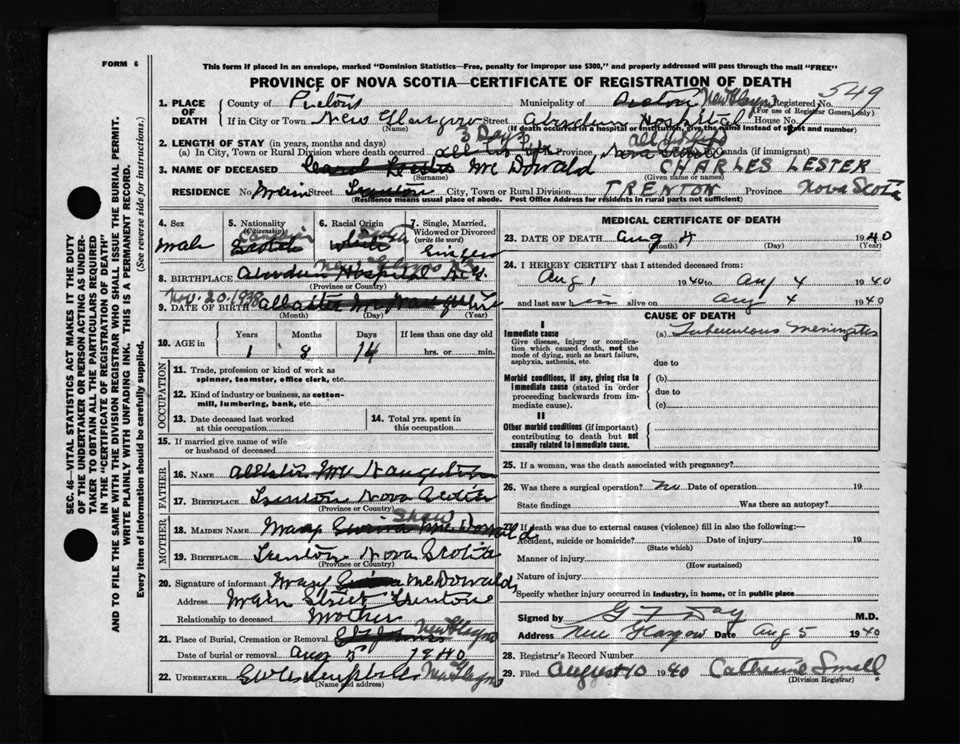 FORM 6
This form if placed in an envelope, marked "Dominion Statistics—Free, penalty for improper use $300," and properly addressed will pass through the mail "FREE"
PROVINCE OF NOVA SCOTIA—CERTIFICATE OF REGISTRATION OF DEATH
1. PLACE OF DEATH
County of Pictou Municipality of Pictou New Glasgow Registered No. 549
(For use of Registrar General only)
If in City or Town, New Glasgow Street Aberdeen Hospital House No.
(Name) (If death occurred in a hospital or institution, give the name instead of street and number)
2. LENGTH OF STAY (in years, months and days)
(a) In City, Town or Rural Division where death occurred 3 Days all his life Province Nova Scotia Canada (if immigrant)
3. NAME OF DECEASED McDonald CHARLES LESTER
(Surname) (Given name or names)
RESIDENCE No. Main Street Trenton City, Town or Rural Division TRENTON Province Nova Scotia
(Residence means usual place of abode. Post Office Address for residents in rural parts not sufficient)
4. Sex
Male
5. Nationality
(Citizenship)
Scotch
6. Racial Origin
white
7. Single, Married, Widowed or Divorced
(write the word)
Single
8. BIRTHPLACE Aberdeen Hospital New Glasgow N.S.
(Province or Country)
Nov. 20. 1938
9. DATE OF BIRTH
(Month) (Day) (Year)
10. AGE in
Years Months Days If less than one day old
1 8 14 hrs. or min.
OCCUPATION
11. Trade, profession or kind of work as spinner, teamster, office clerk, etc.
12. Kind of industry or business, as cotton-mill, lumbering, bank, etc.
13. Date deceased last worked at this occupation
14. Total yrs. spent in this occupation
15. If married give name of wife or husband of deceased
FATHER
16. NAME
17. BIRTHPLACE Trenton Nova Scotia
(Province or Country)
MOTHER
18. MAIDEN NAME Mary Shaw McDonald
19. BIRTHPLACE Trenton Nova Scotia
(Province or Country)
20. Signature of informant Mary McDonald
Address Main Street Trenton
Relationship to deceased Mother
21. Place of Burial, Cremation or Removal New Glasgow
Date of burial or removal Aug 5 1940
22. UNDERTAKER New Glasgow
(Name and address)
MEDICAL CERTIFICATE OF DEATH
23. DATE OF DEATH Aug 4 1940
(Month) (Day) (Year)
24. I HEREBY CERTIFY that I attended deceased from:
Aug 1 1940 to Aug 4 1940
and last saw him alive on Aug 4 1940
CAUSE OF DEATH
I
Immediate cause
Give disease, injury or complication which caused death, not the mode of dying, such as heart failure, asphyxia, asthenia, etc.
(a) Tuberculous meningitis
due to
Morbid conditions, if any, giving rise to immediate cause (stated in order proceeding backwards from immediate cause).
(b)
due to
(c)
II
Other morbid conditions (if important) contributing to death but not causally related to immediate cause.
25. If a woman, was the death associated with pregnancy?
26. Was there a surgical operation? no Date of operation 19
State findings Was there an autopsy?
27. If death was due to external causes (violence) fill in also the following:—
Accident, suicide or homicide? Date of injury 19
(State which)
Manner of injury
(How sustained)
Nature of injury
Specify whether injury occurred in industry, in home, or in public place
Signed by G Day M.D.
Address New Glasgow Date Aug 5 1940
28. Registrar's Record Number
29. Filed August 10 1940 Catherine Smell
(Division Registrar)
SEC. 46—VITAL STATISTICS ACT MAKES IT THE DUTY
OF THE UNDERTAKER OR PERSON ACTING AS UNDER-
TAKER TO OBTAIN ALL THE PARTICULARS REQUIRED
IN THE "CERTIFICATE OF REGISTRATION OF DEATH"
AND TO FILE THE SAME WITH THE DIVISION REGISTRAR WHO SHALL ISSUE THE BURIAL PERMIT.
WRITE PLAINLY WITH UNFADING INK. THIS IS A PERMANENT RECORD.
Every item of information should be carefully supplied. (See reverse side for instructions.)